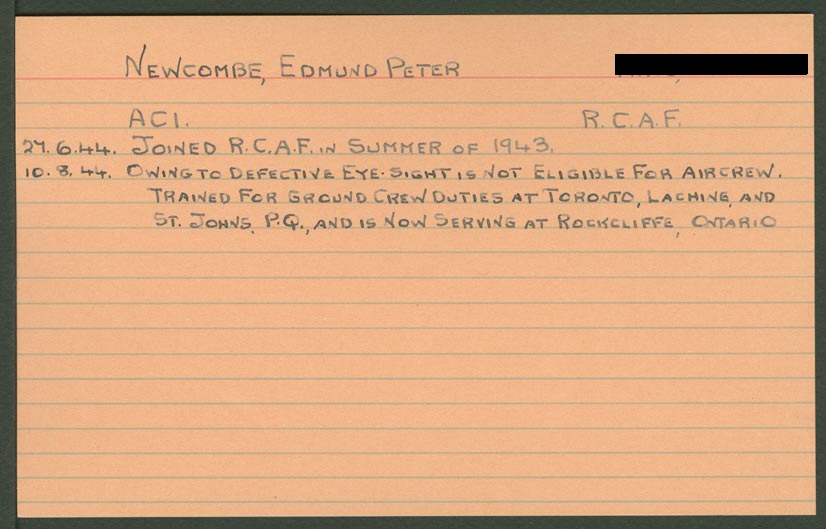 NEWCOMBE, EDMUND PETER
AC1. R.C.A.F.
27.6.44. JOINED R.C.A.F. IN SUMMER OF 1943.
10.8.44. OWING TO DEFECTIVE EYE-SIGHT IS NOT ELIGIBLE FOR AIRCREW.
TRAINED FOR GROUND CREW DUTIES AT TORONTO, LACHINE, AND
ST. JOHNS, P.Q., AND IS NOW SERVING AT ROCKCLIFFE, ONTARIO